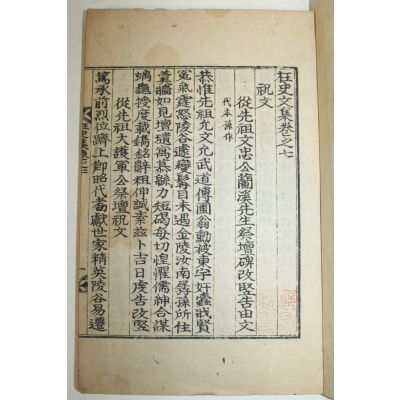 枉史文集卷之七
祝文
從先祖文忠公蘭溪先生祭壇碑改竪告由文
代本孫作
恭惟先祖允文允武道傳圃翁勳被東宇奸蠹戕賢
冤氣霆怒陵谷遽變髥目未遇金陵汝南尋孫所住
羹墻如見壇墠寓慕緜力短碣每切惶懼儒紳合謀
螭龜授度載鐫銘辭粗伸誠素玆卜吉日虔告改竪
從先祖大護軍公祭壇祝文
篤承前烈位躋上卿昭代耈獻世家精英陵谷易遷